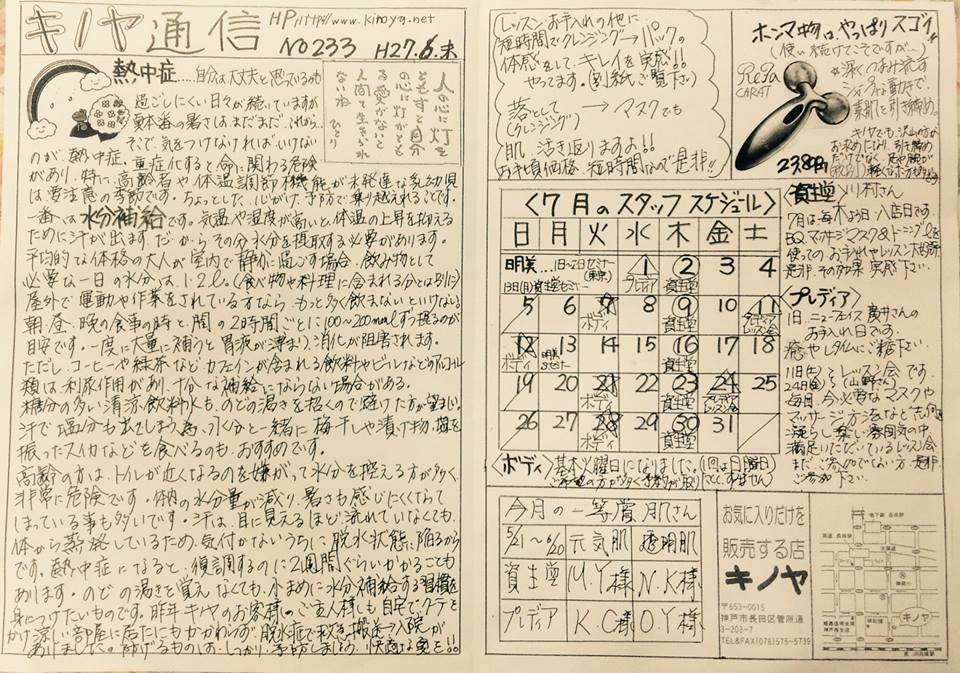 キノヤ通信
HP,http://www.kinoya.net
NO233 H27.6.末
熱中症……自分は大丈夫と思っているあなた
過ごしにくい日々が続いていますが
夏本番の暑さはまだまだ、これから…
そこで、気をつけなければいけない
人の心に灯を
ともすと自分
の心に灯がとも
る愛がないと
人間て生きられ
ないね
ひとり
のが、熱中症、重症化すると命に関わる危険
があり、特に、高齢者や体温調節機能が未発達な乳幼児
は要注意の季節です。ちょっとした心がけ、予防で乗り越えれることです。
一番には水分補給です。気温や湿度が高いと、体温の上昇を抑える
ために汗が出ます。だからその分水分を摂取する必要があります。
平均的な体格の大人が室内で静かに過ごす場合、飲み物として
必要な一日の水分は、1.2ℓ。(食べ物や料理に含まれる分とは別に)
屋外で運動や作業をされている方なら、もっと多く飲まないといけない。
朝・昼・晩の食事の時と、間の2時間ごとに100~200mlずつ摂るのが
目安です。一度に大量に補うと胃液が薄まり、消化が阻害されます。
ただし、コーヒーや緑茶などカフェインが含まれる飲料やビールなどのアルコール
類は利尿作用があり、十分な補給にならない場合がある。
糖分の多い清涼飲料水も、のどの渇きを招くので避けた方が望ましい。
汗で塩分も出てしまう為、水分と一緒に梅干しや漬け物、塩を
振ったスイカなどを食べるのも、おすすめです。
高齢の方は、トイレが近くなるのを嫌がって水分を控える方が多く、
非常に危険です。体内の水分量が減り、暑さも感じにくくなって
しまっている事も多いです。汗は、目に見えるほど流れていなくても、
体から蒸発しているため、気付かないうちに脱水状態に陥るから
です。熱中症になると、復調するのに2週間ぐらいかかることも
あります。のどの渇きを覚えなくても、小まめに水分補給する習慣を
身につけたいものです。昨年キノヤのお客様のご主人様も自宅でクーラーを
かけ涼しい部屋に居たにもかかわらず、脱水症で救急搬送→入院が
ありました。防げるものは、しっかり、予防しましょう。快適な夏を!!
レッスンお手入れの他に
短時間でクレンジング→パックの
体感をして、キレイを実感!!
やってます。(別紙、ご覧下さい)
落として→マスクでも
(クレンジング)
肌、活き返りますよ!!
お手頃価格、短時間なので是非!!
ホンマ物は、やっぱりスゴイ!!
(使い続けてこそですが…)
ReFa
CARAT
*深くつまみ流す
ような動きで、
素肌を引き締め。
キノヤでも沢山の方が
お求めになり、引き締め
23,800円
(税別)
資生堂 メリ村さん
7月は毎木よう日入店日です。
BQ、マッサージマスク&トーニングを
使ってのお手入れやレッスン、
是非、その効果、実感下さい。
<プレディア>
1日、ニューフェイス廣井さんの
お手入れ日です。
癒やしタイムにご来店下さい。
11日(土)とレッスン会です。
24日(金)(山野さん)
毎日、今必要なマスクや
マッサージ方法など
凝らし楽しい雰囲気の中、
満足いただいているレッスン会
まだ、ご参加でない方、是非、
ご参加下さい。
〈7月のスタッフスケジュール〉
日 月 火 水 木 金 土
明美…1日~2日セミナー(東京)
13日(月)資生堂セミナー
1 プレディア 2 資生堂 3 4
5 6 7 ボディ 8 9 資生堂 10 11 プレディアレッスン会
12 ボディ 13 明美セミナー 14 15 16 資生堂 17 18
19 20 21 ボディ 22 23 資生堂 24 プレディアレッスン会 25
26 27 28 ボディ 29 30 資生堂 31
〈ボディ〉基本火曜日になりました。(1回は日曜日
今月の一等賞 肌さん
5/21~6/20 元気肌 透明肌
資生堂 M.Y様 N.K様
プレディア K.C様 O.Y様
お気に入りだけを
販売する店
キノヤ
〒653-0015
神戸市長田区菅原通
3-203-7
TEL&FAX(078)575-5739
キノヤ